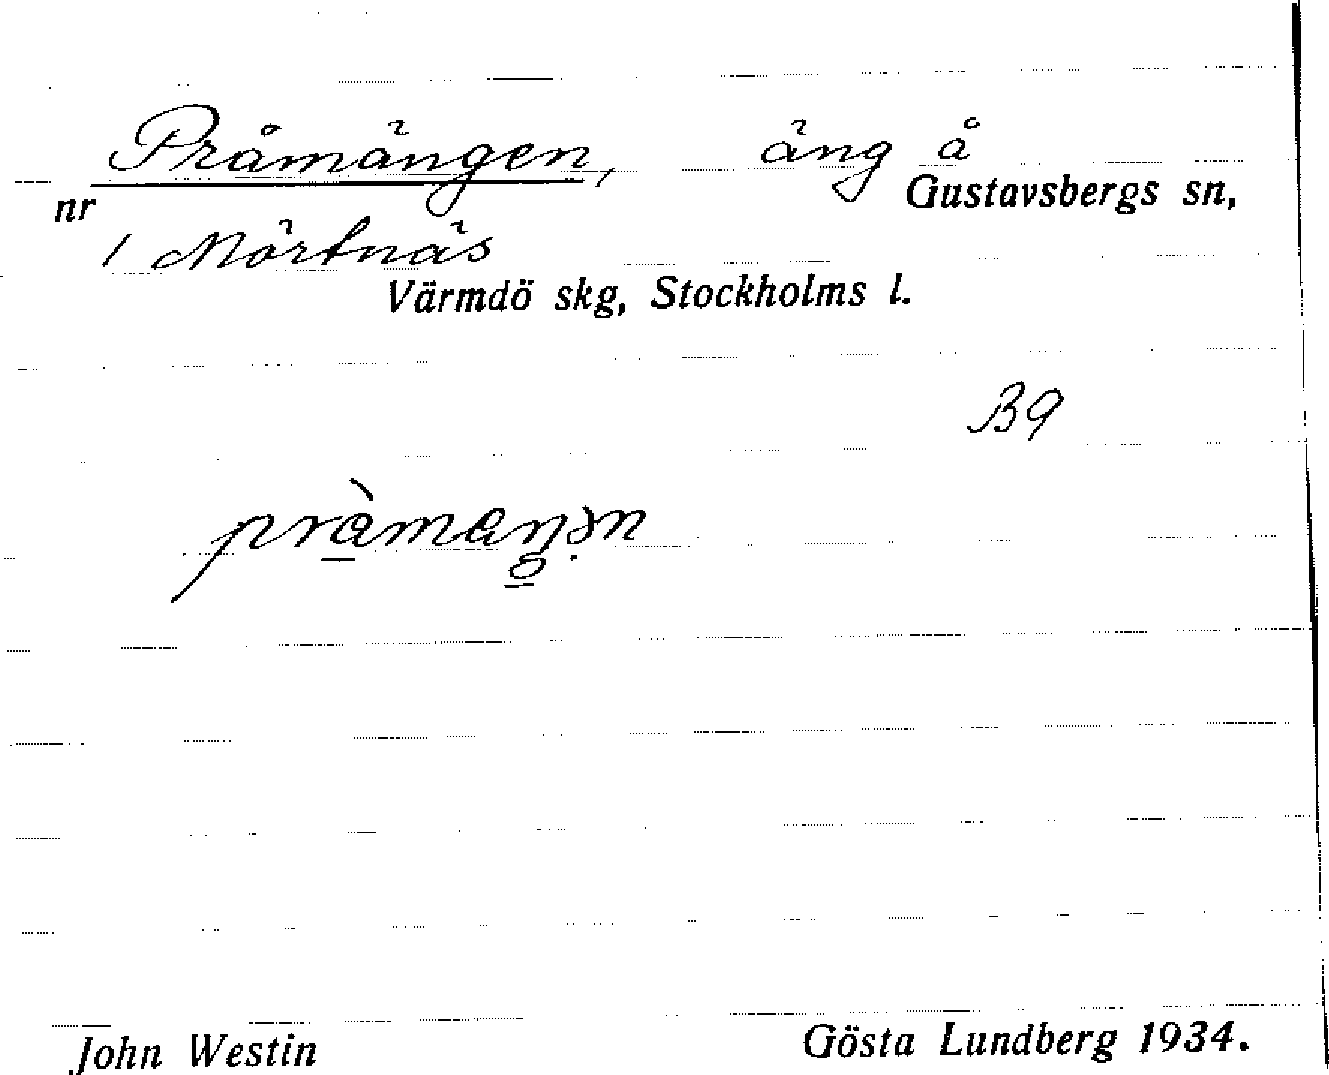 Pråmängen, äng å
nr Gustavsbergs sn,
1 Mörtnäs
Värmdö skg, Stockholms l.
B9
John Westin Gösta Lundberg 1934.